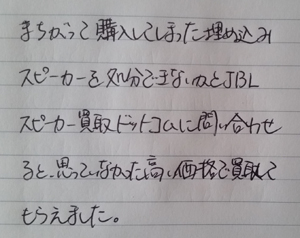 まちがって購入してしまった埋め込み
スピーカーを処分できないかとJBL
スピーカー買取ドットコムに問い合わせ
ると、思っていなかった高い価格で買取して
もらえました。